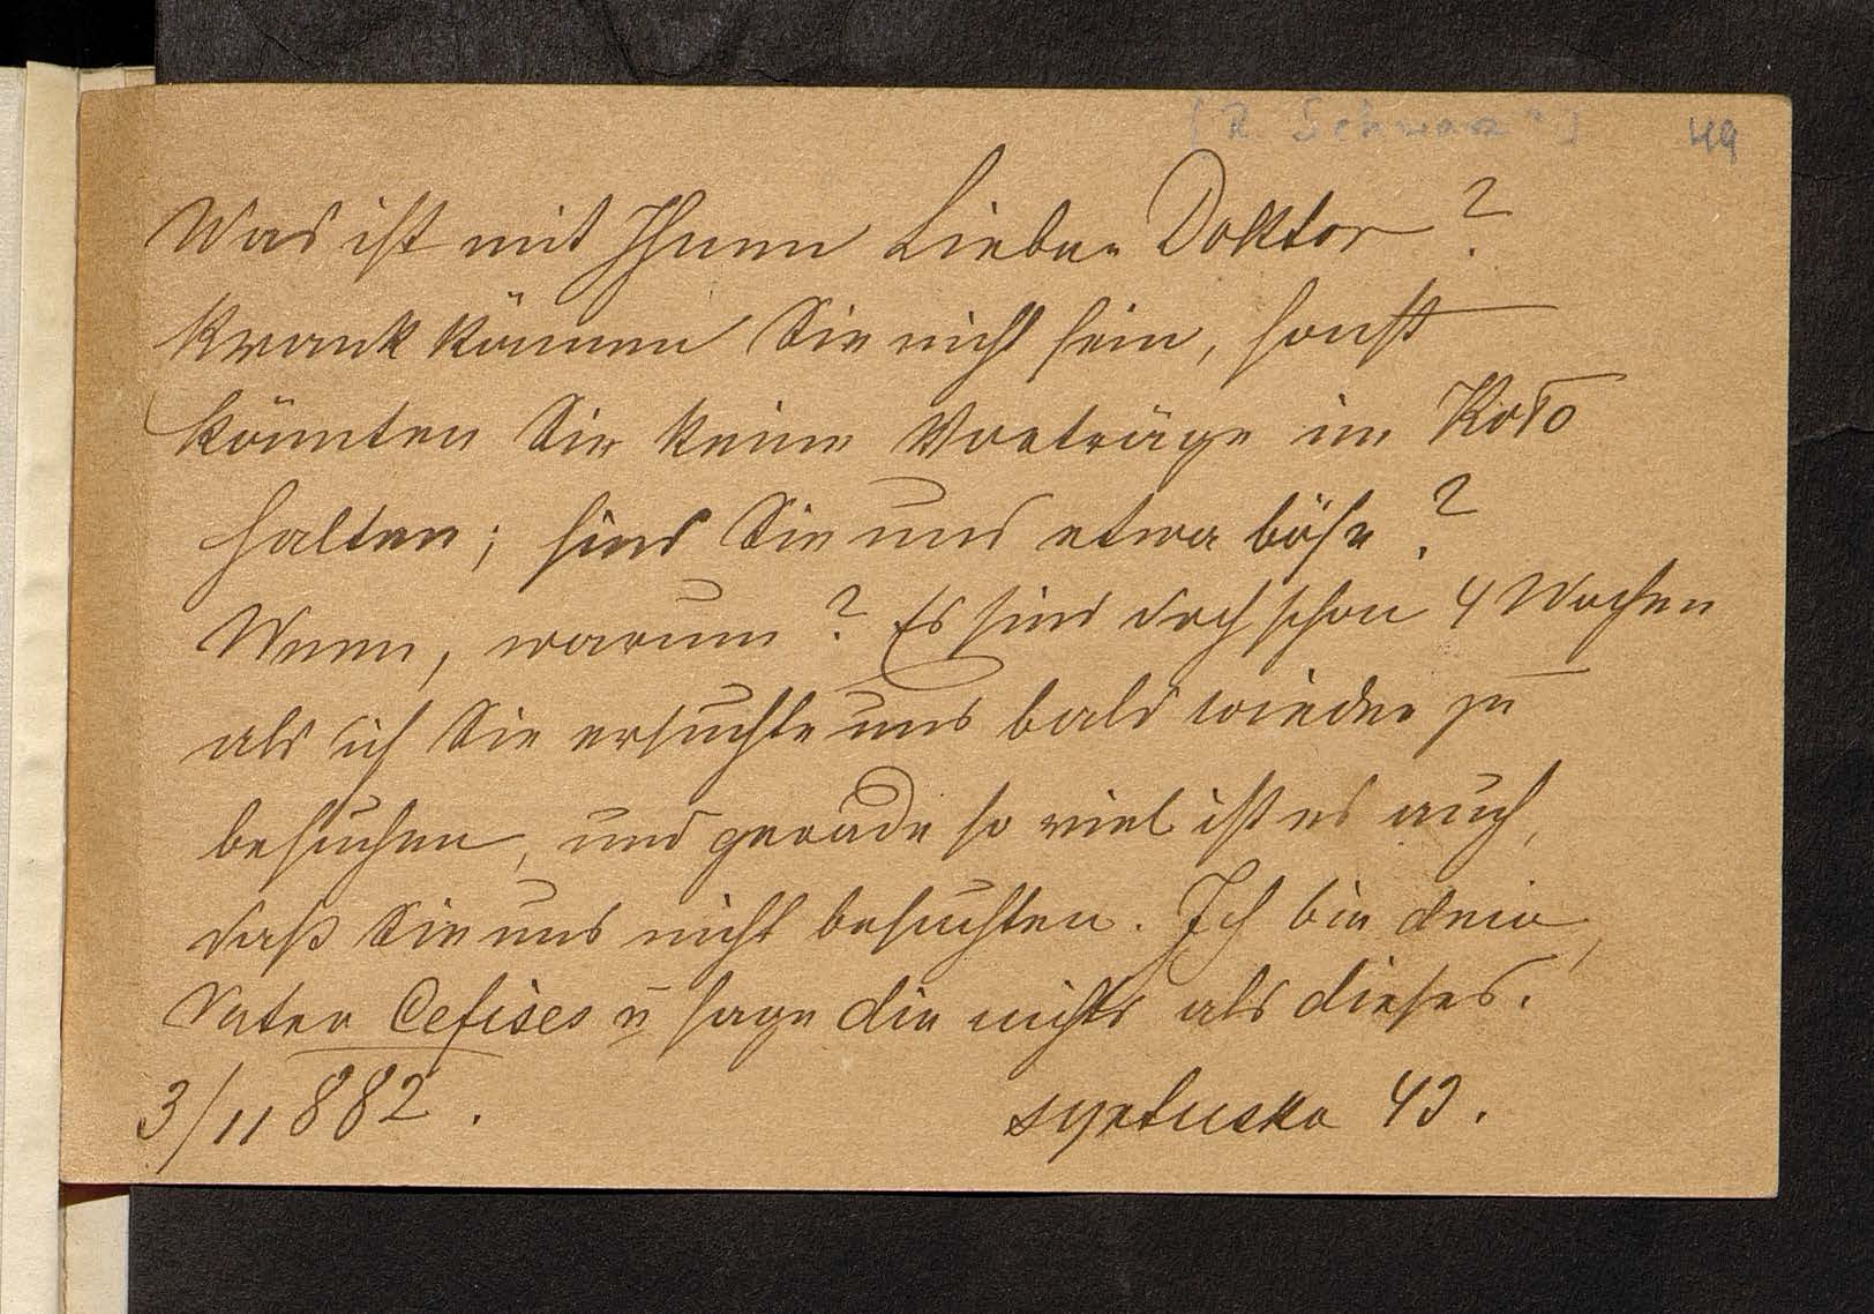 [R. Schwarz?] 49
Was ist mit Ihnen Lieber Doktor?
Krank können Sie nicht sein, sonst
könnten Sie keine Vorträge im Koło
halten; sind Sie uns etwa böse?
Wenn, warum? Es sind doch schon 4 Wochen
als ich Sie ersuchte uns bald wieder zu
besuchen, und gerade so viel ist es auch,
daß Sie uns nicht besuchten. Ich bin dein
Vater Cefises u sage dir nichts als dieses.
3/11 882.